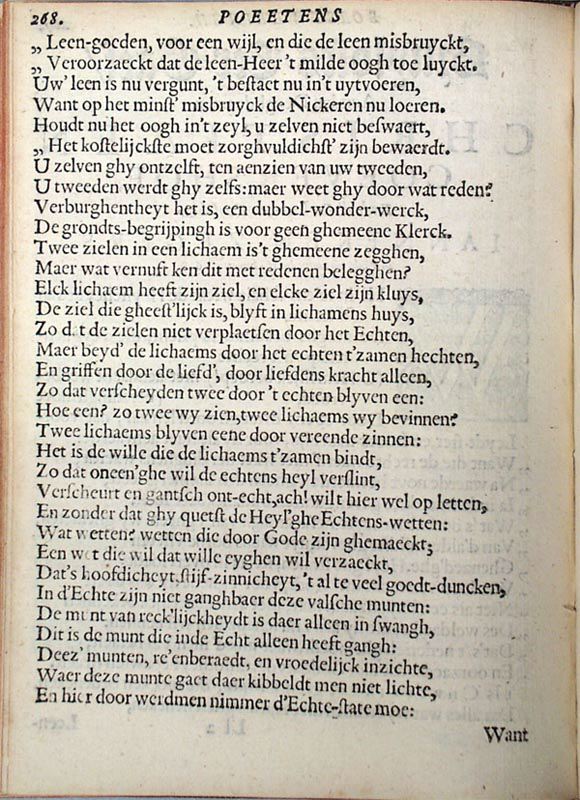 268. POEETENS
„ Leen-goeden, voor een wijl, en die de leen misbruyckt,
„ Veroorzaeckt dat de leen-Heer 't milde oogh toe luyckt.
Uw' leen is nu vergunt, 't bestaet nu in't uytvoeren,
Want op het minst' misbruyck de Nickeren nu loeren.
Houdt nu het oogh in't zeyl, u zelven niet beswaert,
„ Het kostelijckste moet zorghvuldichst' zijn bewaerdt.
U zelven ghy ontzelft, ten aenzien van uw tweeden,
U tweeden werdt ghy zelfs: maer weet ghy door wat reden?
Verburghentheyt het is, een dubbel-wonder-werck,
De grondts-begrijpingh is voor geen ghemeene Klerck.
Twee zielen in een lichaem is't ghemeene zegghen,
Maer wat vernuft ken dit met redenen belegghen?
Elck lichaem heeft zijn ziel, en elcke ziel zijn kluys,
De ziel die gheest'lijck is, blyft in lichamens huys,
Zo dat de zielen niet verplaetsen door het Echten,
Maer beyd' de lichaems door het echten t'zamen hechten,
En griffen door de liefd', door liefdens kracht alleen,
Zo dat verscheyden twee door 't echten blyven een:
Hoe een? zo twee wy zien, twee lichaems wy bevinnen?
Twee lichaems blyven eene door vereende zinnen:
Het is de wille die de lichaems t'zamen bindt,
Zo dat oneen'ghe wil de echtens heyl verslint,
Verscheurt en gantsch ont-echt, ach! wilt hier wel op letten,
En zonder dat ghy quetst de Heyl'ghe Echtens-wetten:
Wat wetten? wetten die door Gode zijn ghemaeckt;
Een wet die wil dat wille eyghen wil verzaeckt,
Dat's hoofdicheyt, stijf-zinnicheyt, 't al te veel goedt-duncken,
In d'Echte zijn niet ganghbaer deze valsche munten:
De munt van reck'lijckheydt is daer alleen in swangh,
Dit is de munt die inde Echt alleen heeft gangh:
Deez' munten, re'enberaedt, en vroedelijck inzichte,
Waer deze munte gaet daer kibbeldt men niet lichte,
En hier door werdmen nimmer d'Echte-state moe:
Want